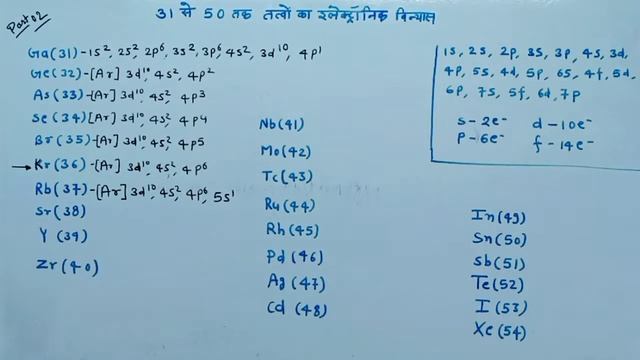 Part 02
31 से 50 तक तत्वों का इलेक्ट्रॉनिक विन्यास
Ga(31) - 1s², 2s², 2p⁶, 3s², 3p⁶, 4s², 3d¹⁰, 4p¹
Ge(32) - [Ar] 3d¹⁰, 4s², 4p²
As(33) - [Ar] 3d¹⁰, 4s², 4p³
Se(34) - [Ar] 3d¹⁰, 4s², 4p4
Br(35) - [Ar] 3d¹⁰, 4s², 4p5
→ Kr(36) - [Ar] 3d¹⁰, 4s², 4p⁶
Rb(37) - [Ar] 3d¹⁰, 4s², 4p⁶, 5s¹
Sr(38)
Y(39)
Zr(40)
Nb(41)
Mo(42)
Tc(43)
Ru(44)
Rh(45)
Pd(46)
Ag(47)
Cd(48)
1s, 2s, 2p, 3s, 3p, 4s, 3d,
4p, 5s, 4d, 5p, 6s, 4f, 5d,
6p, 7s, 5f, 6d, 7p
s-2e⁻ d-10e⁻
p-6e⁻ f-14e⁻
In(49)
Sn(50)
Sb(51)
Te(52)
I(53)
Xe(54)